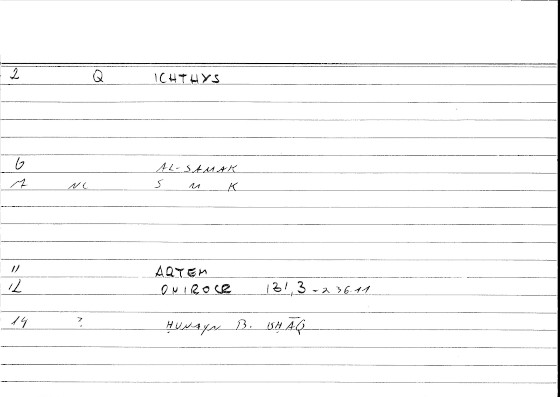 2 Q ICHTHYS
6 AL-SAMAK
7 NC S M K
11 ARTEM
12 ONIROCR 131,3-23611
14 ? ḤUNAYN B. ISḤĀQ